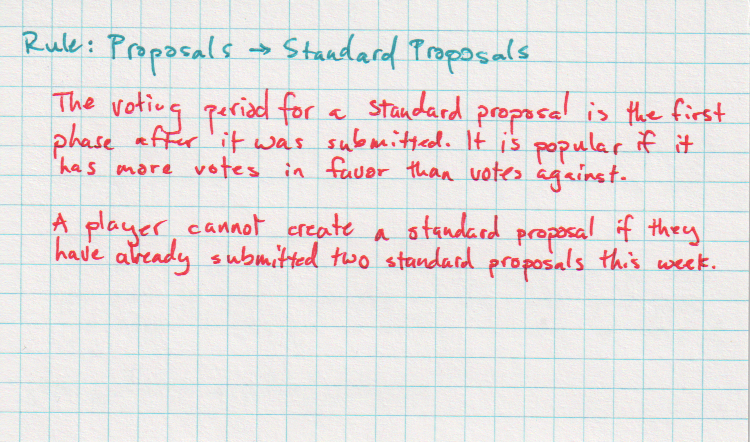 Rule: Proposals → Standard Proposals
The voting period for a standard proposal is the first
phase after it was submitted. It is popular if it
has more votes in favor than votes against.
A player cannot create a standard proposal if they
have already submitted two standard proposals this week.